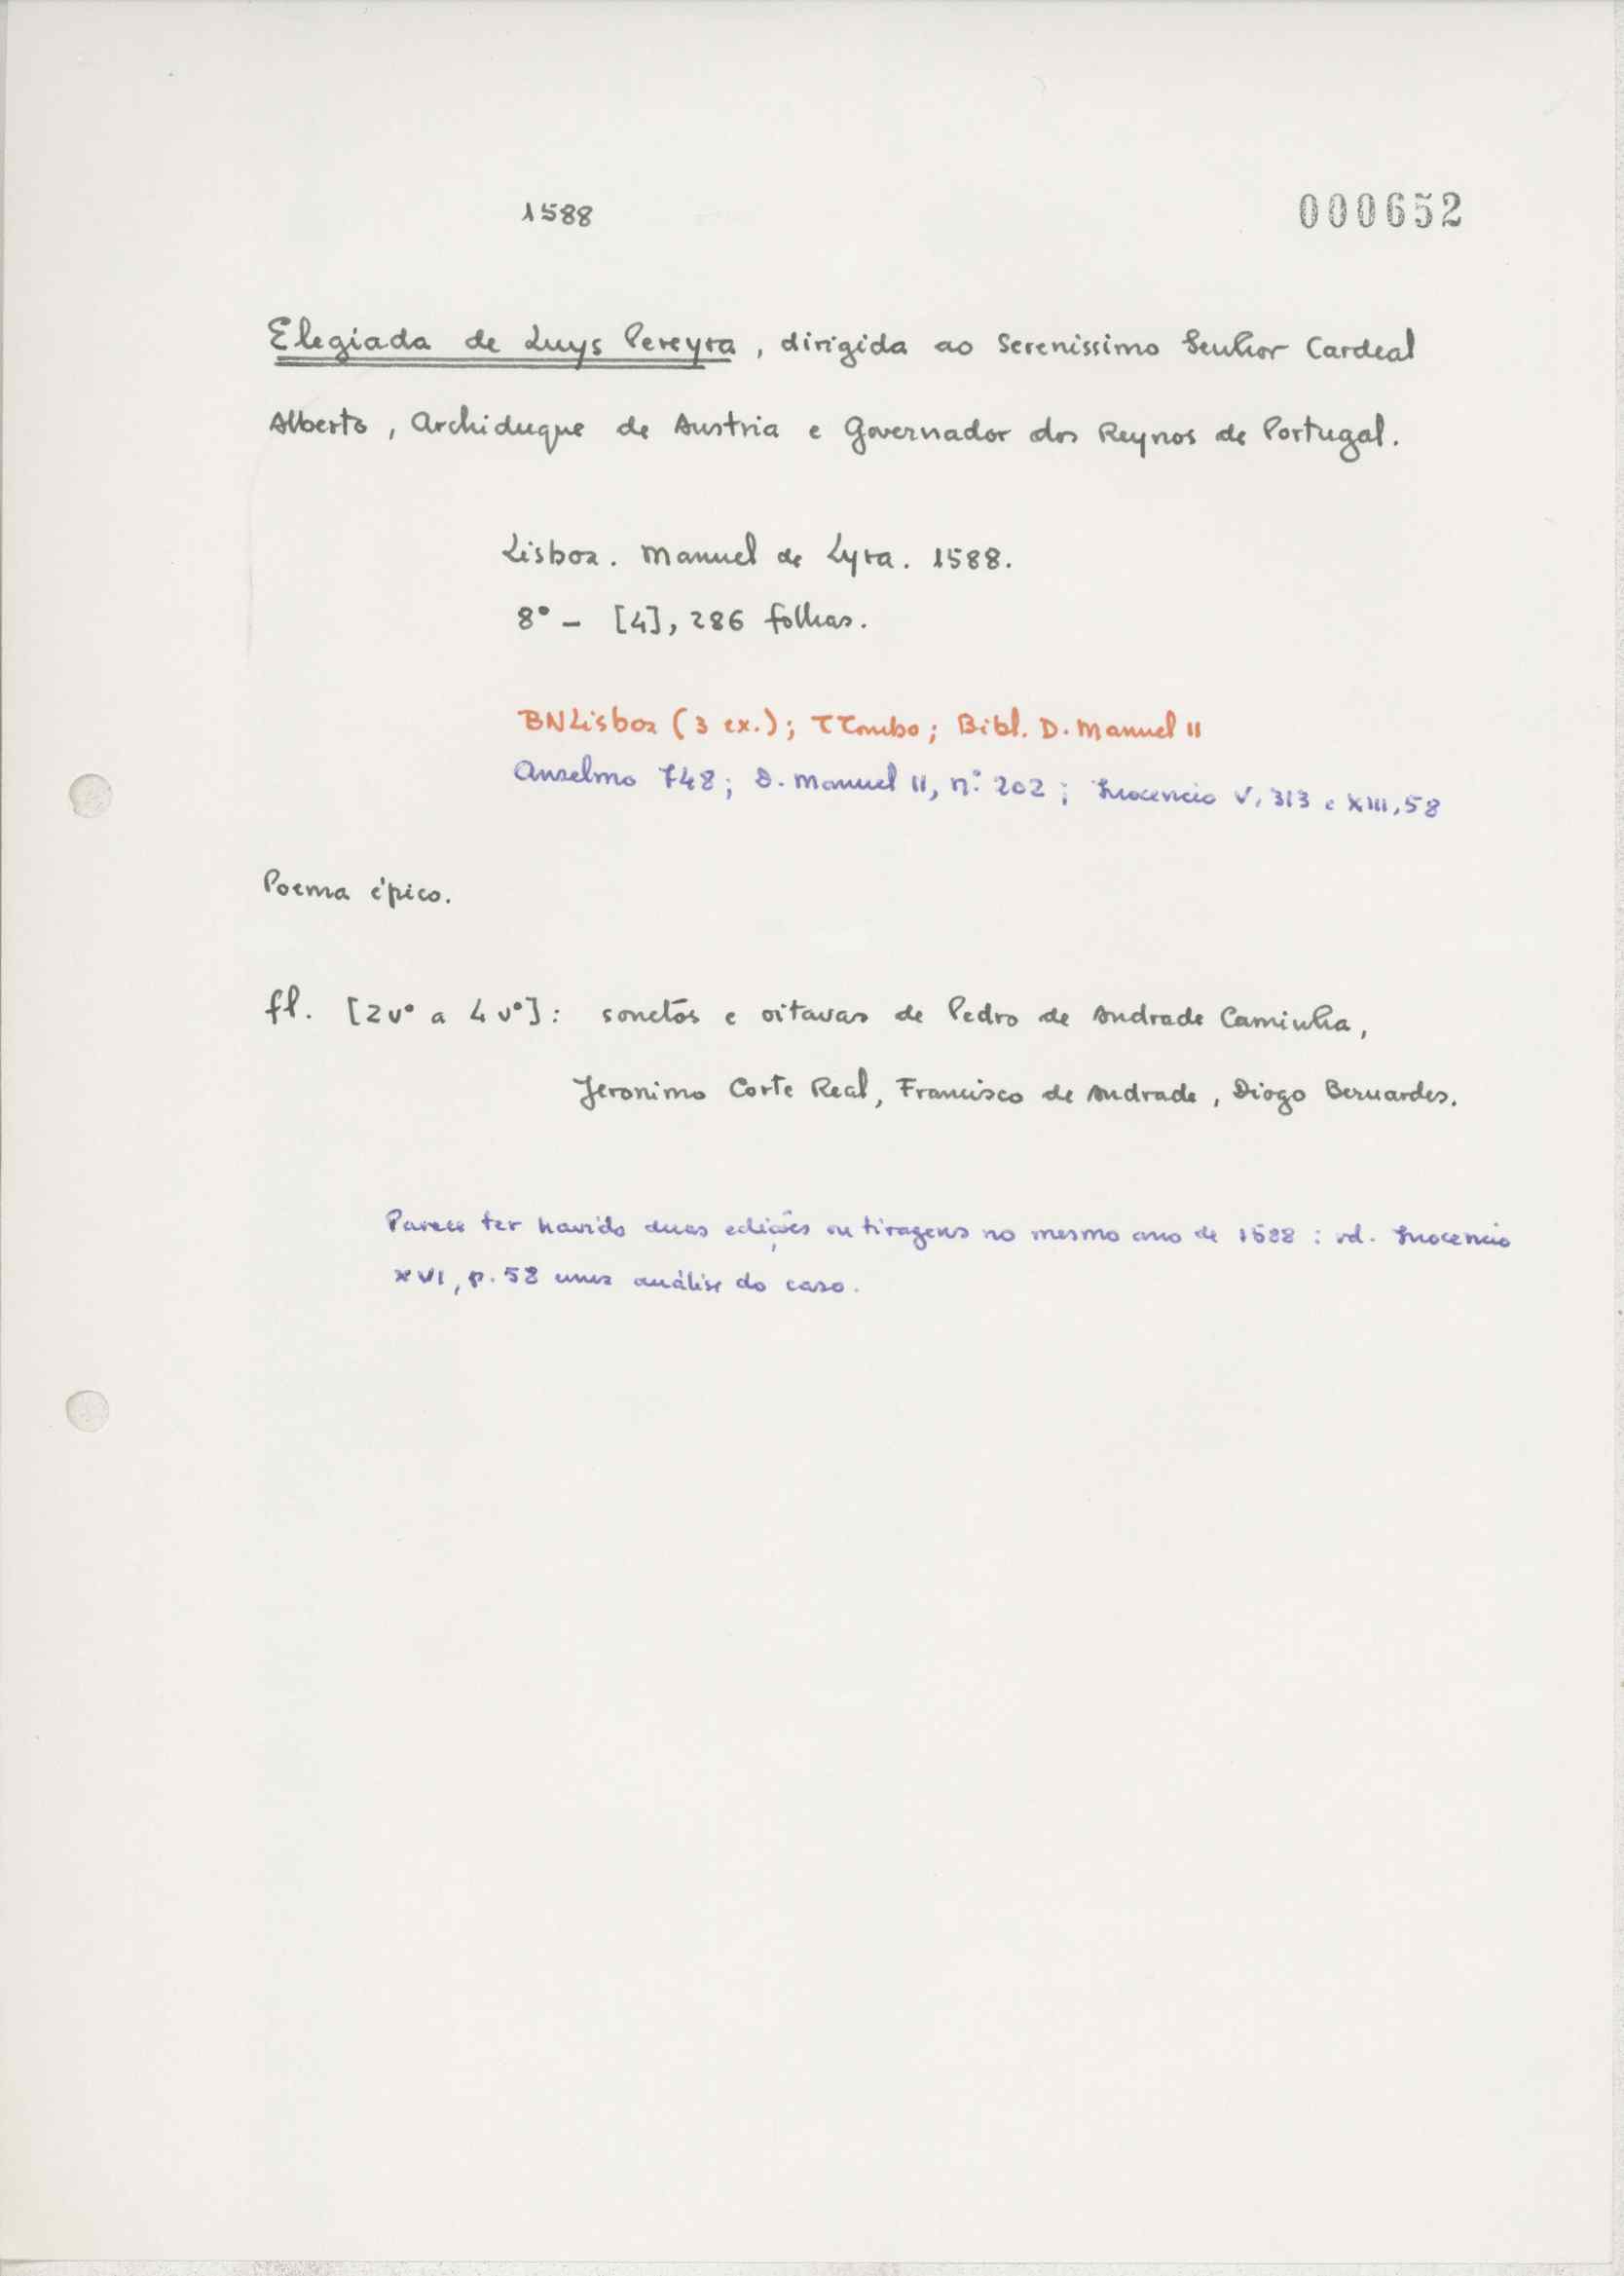 1588
000652
Elegiada de Luys Pereyra, dirigida ao Serenissimo Senhor Cardeal
Alberto, Archiduque de Austria e Governador dos Reynos de Portugal.
Lisboa. Manuel de Lyra. 1588.
8º - [4], 286 folhas.
BNLisboa (3 ex.); TTombo; Bibl. D. Manuel II
Anselmo 748; D. Manuel II, n.º 202; Inocencio V, 313 e XIII, 58
Poema épico.
fl. [2vº a 4vº]: sonetos e oitavas de Pedro de Andrade Caminha,
Jeronimo Corte Real, Francisco de Andrade, Diogo Bernardes.
Parece ter havido duas edições ou tiragens no mesmo ano de 1588: vd. Inocencio
XVI, p. 58 uma análise do caso.